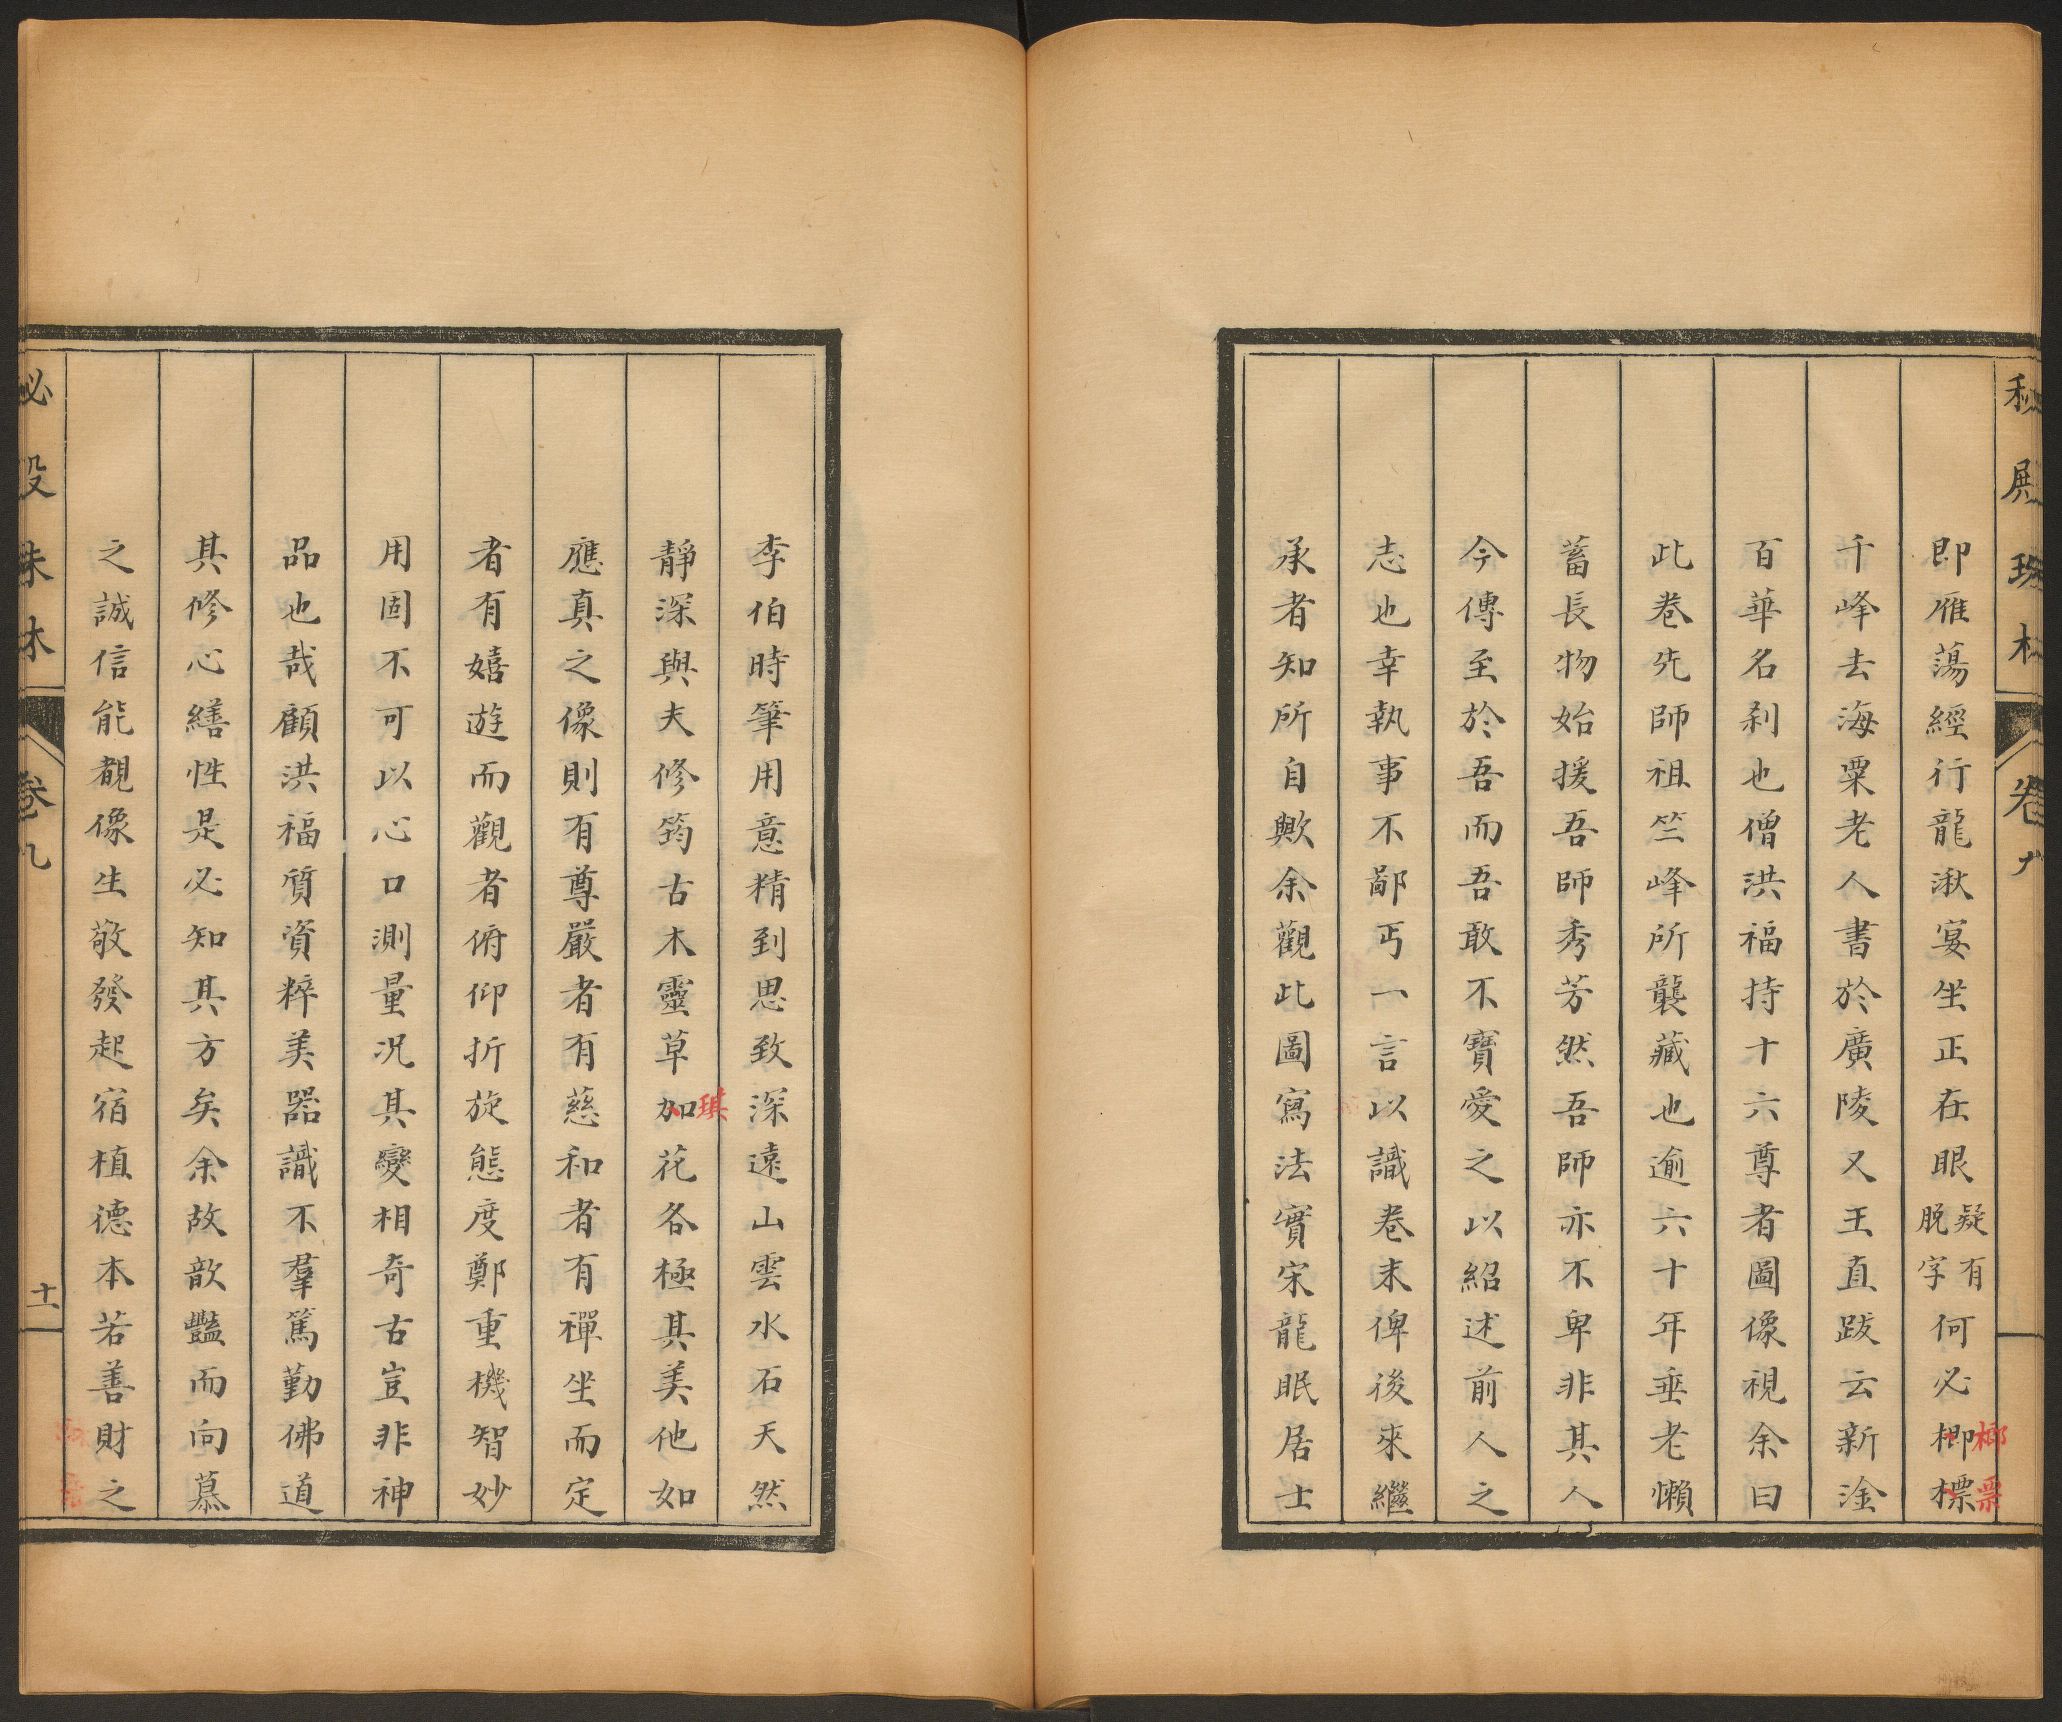 秘殿珠林 卷九
即雁蕩經行龍湫宴坐正在眼疑有脱字何必楖標
榔
栗
千峰去海粟老人書於廣陵又王直跋云新淦
百華名刹也僧洪福持十六尊者圖像視余曰
此卷先師祖竺峰所襲藏也逾六十年垂老懶
蓄長物始援吾師秀芳然吾師亦不卑非其人
今傳至於吾而吾敢不寶愛之以紹述前人之
志也幸執事不鄙丐一言以識卷末俾後來繼
承者知所自歟余觀此圖寫法實宋龍眠居士
李伯時筆用意精到思致深遠山雲水石天然
靜深與夫修筠古木靈草加花各極其美他如
琪
應真之像則有尊嚴者有慈和者有禪坐而定
者有嬉遊而觀者俯仰折旋態度鄭重機智妙
用固不可以心口測量況其變相奇古豈非神
品也哉顧洪福質資粹美器識不羣篤勤佛道
其修心繕性是必知其方矣余故歆豔而向慕
之誠信能覩像生敬發起宿植德本若善財之
秘殿珠林 卷九 十一